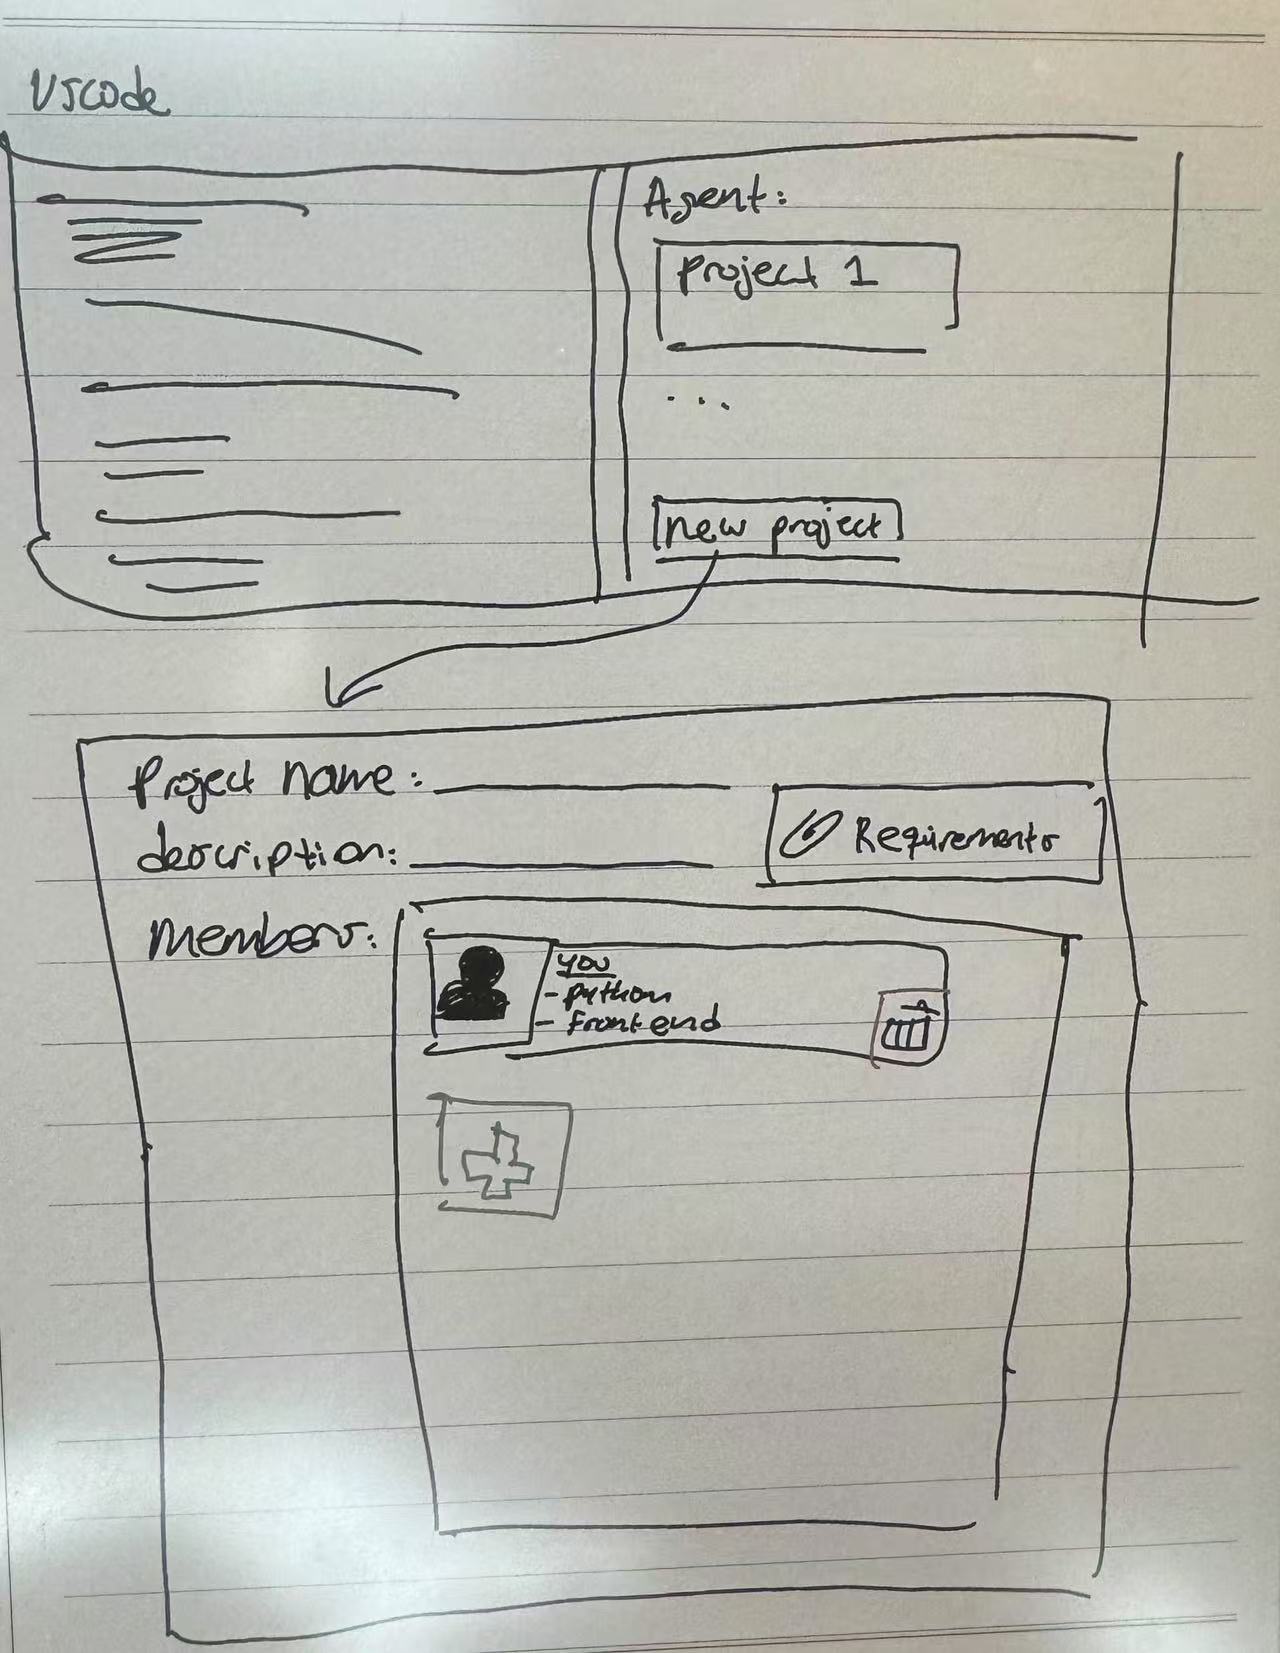 VScode
Agent:
Project 1
...
new project
Project name:
description:
Requirements
members:
you
- python
- Frontend